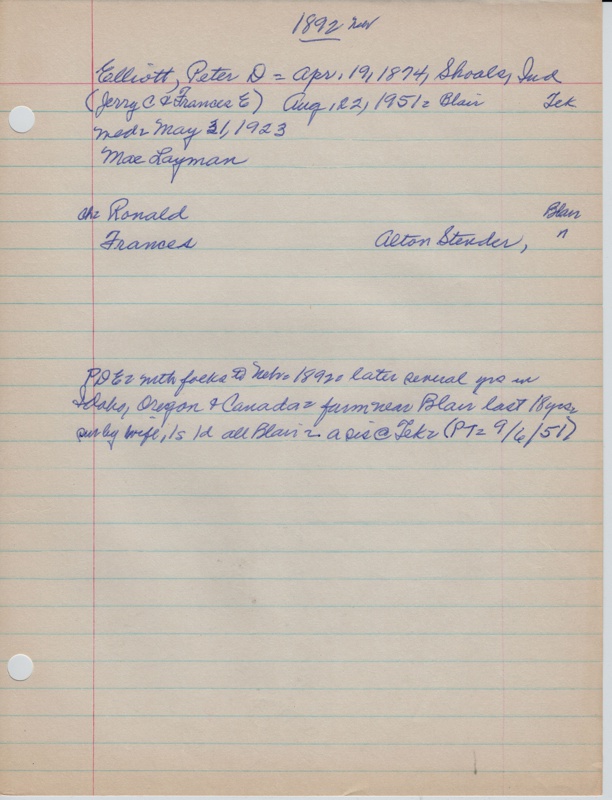 1892 Nev
Elliott, Peter D = Apr. 19, 1874, Shoals, Ind
(Jerry C & Frances E) Aug, 22, 1951 = Blair Tek
med = May 31, 1923
Mae Layman
ch = Ronald Blair
Frances Alton Stender, "
PDE = with folks to Neb = 1892 = later several yrs in
Idaho, Oregon & Canada = farm near Blair last 18 yrs =
sur by wife, 1s 1d all Blair = a sis @ Tek = (PT = 9/6/51)